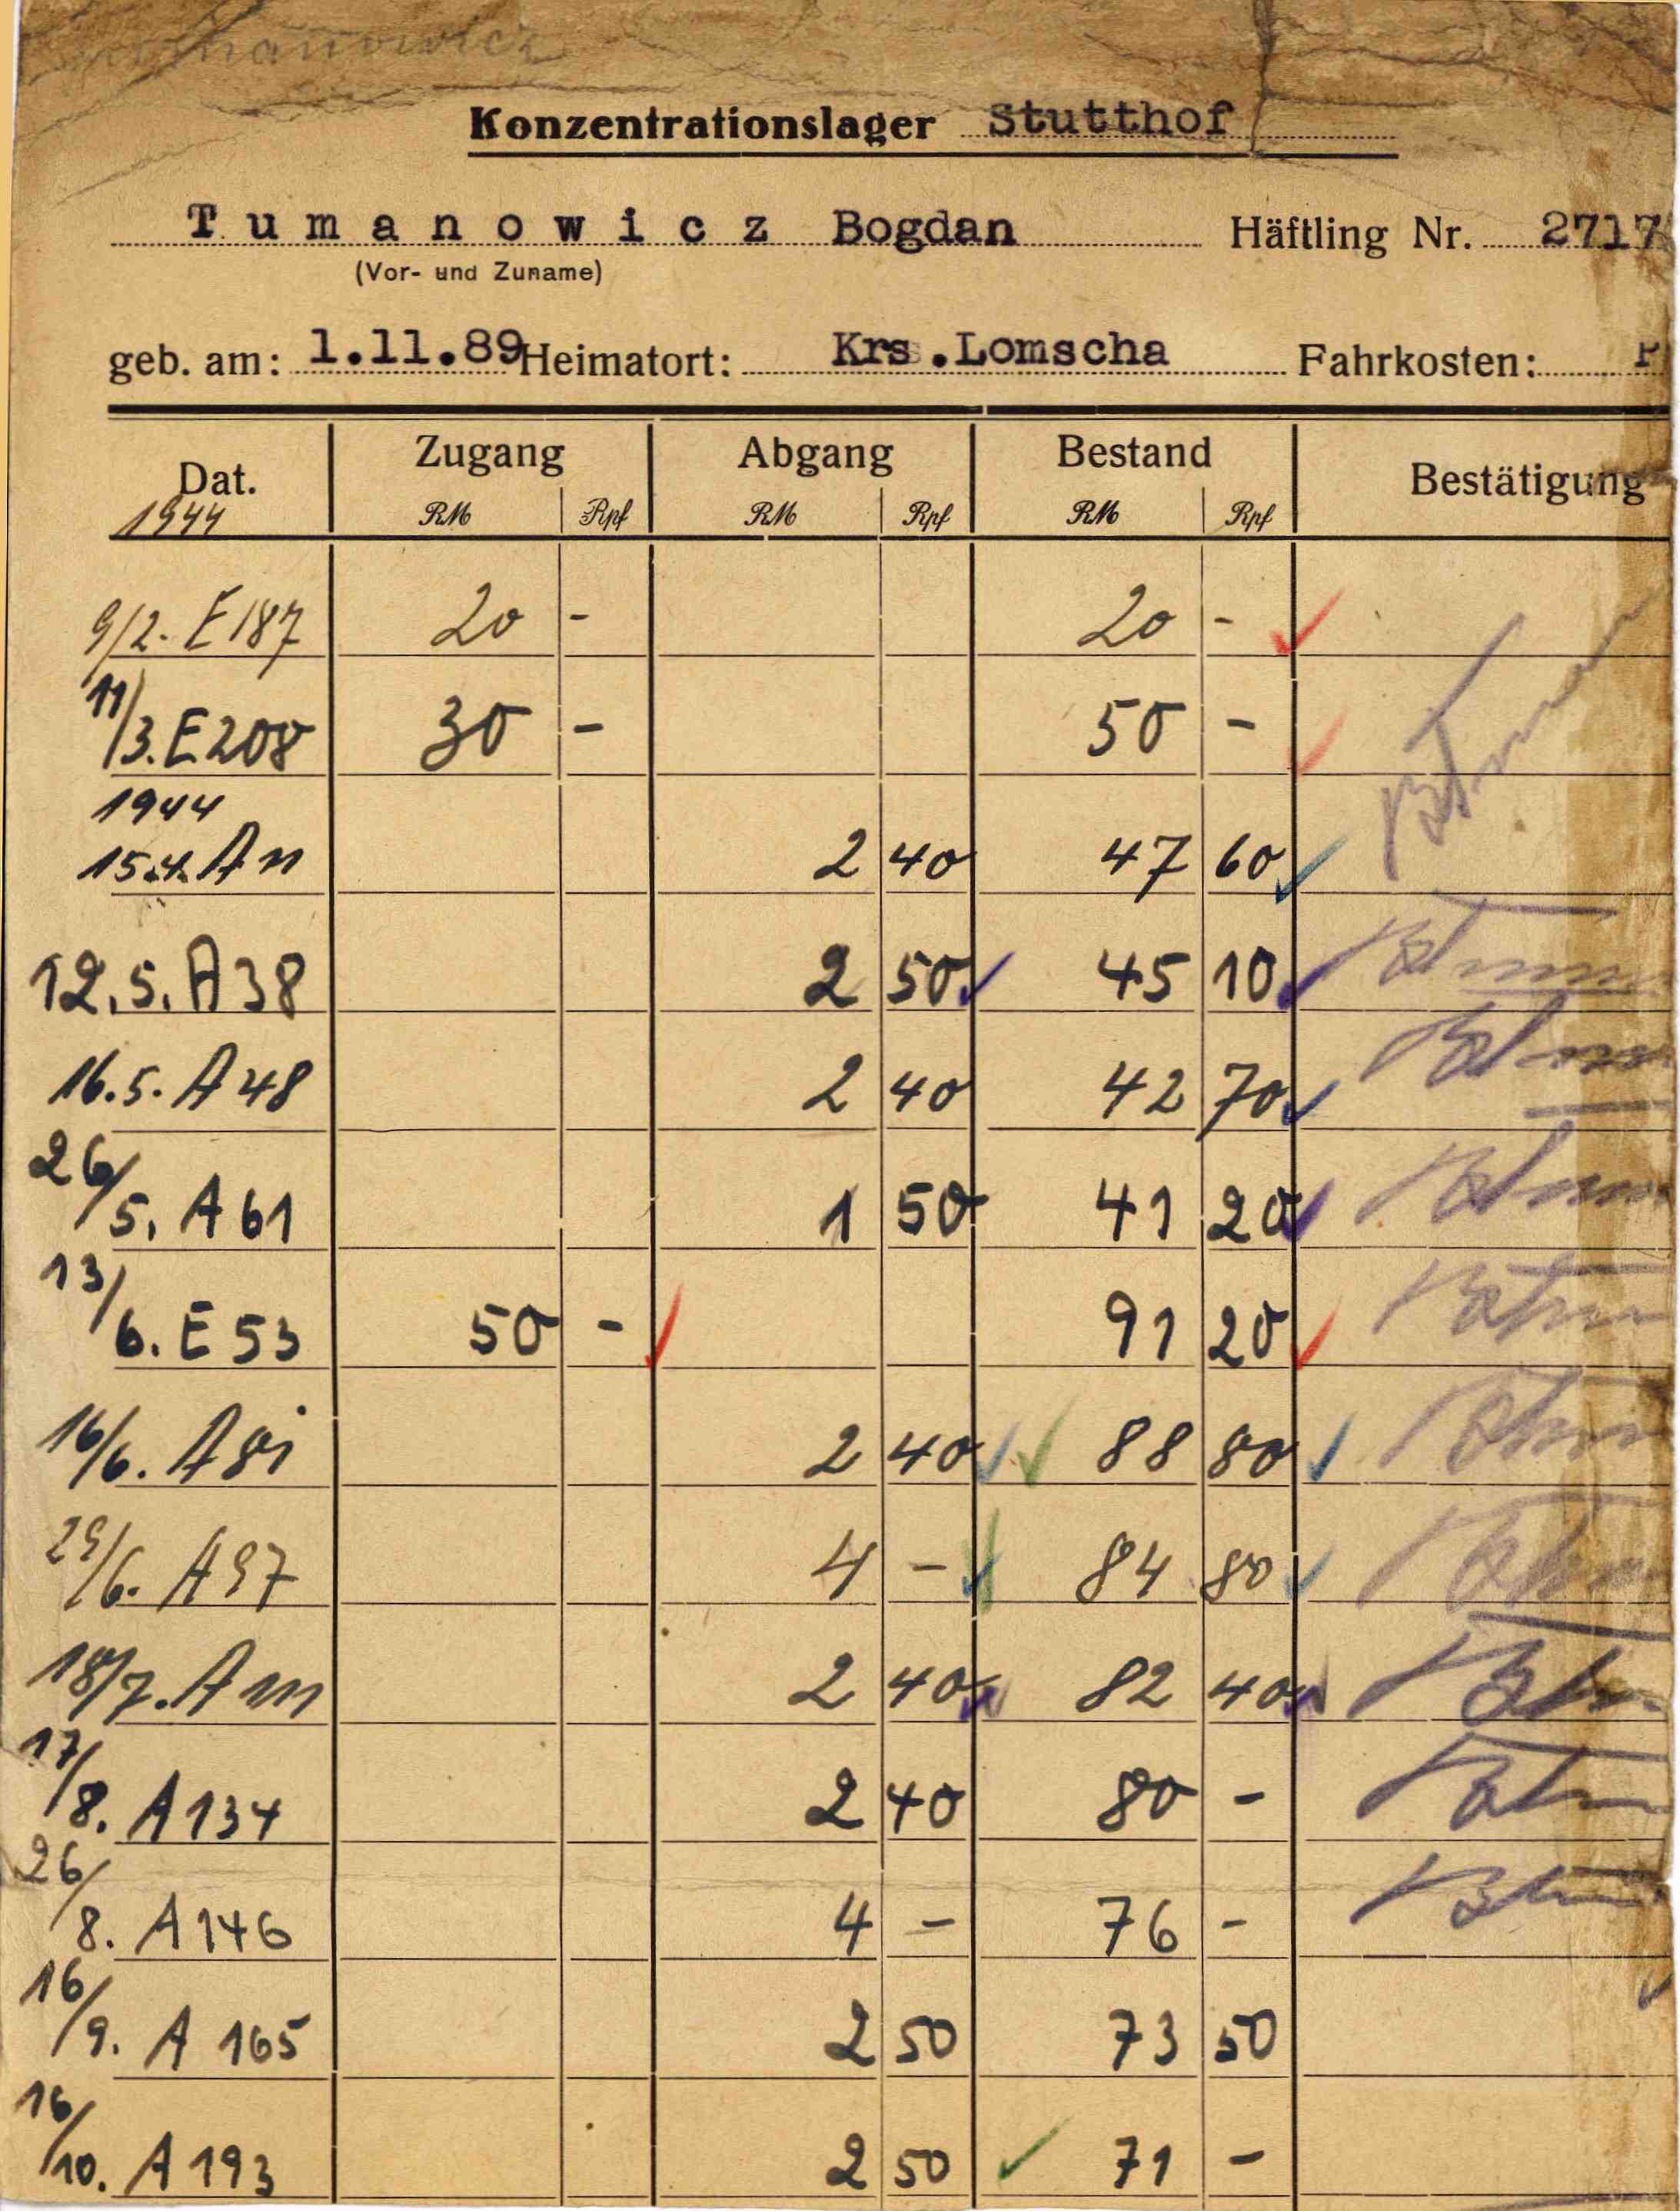 Konzentrationslager Stutthof
Tumanowicz Bogdan Häftling Nr. 2717
(Vor- und Zuname)
geb. am: 1.11.89 Heimatort: Krs.Lomscha Fahrkosten:
Dat. Zugang Abgang Bestand Bestätigung
1944 RM Rpf RM Rpf RM Rpf
9/2. E187 20 - 20 -
11/3. E208 30 - 50 -
1944
15.4. A11 2 40 47 60
12.5. A38 2 50 45 10
16.5. A48 2 40 42 70
26/5. A61 1 50 41 20
13/6. E53 50 - 91 20
16/6. A81 2 40 88 80
29/6. A97 4 - 84 80
18/7. A111 2 40 82 40
17/8. A134 2 40 80 -
26/8. A146 4 - 76 -
16/9. A 165 2 50 73 50
16/10. A193 2 50 71 -